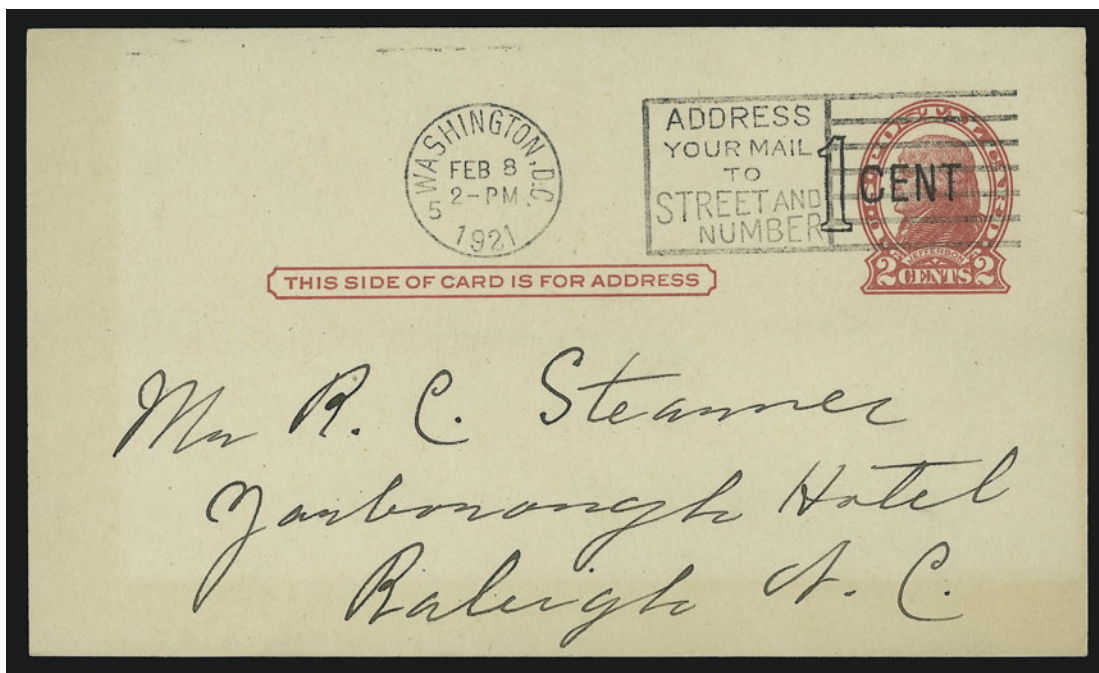 WASHINGTON, D.C.
FEB 8
2-PM
5
1921
ADDRESS
YOUR MAIL
TO
STREET AND
NUMBER
1 CENT
JEFFERSON
2 CENTS 2
THIS SIDE OF CARD IS FOR ADDRESS
Mr R. C.
Yarborough Hotel
Raleigh N. C.